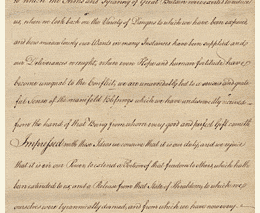 to which the Arms and Tyranny of Great Britain were exerted to reduce
us, when we look back on the Variety of Dangers to which we have been exposed
and how miraculously our Wants in many Instances have been supplied and
our Deliverances wrought, when even Hope and human fortitude have
become unequal to the Conflict; we are unavoidably led to a serious and grate
ful Sense of the manifold Blessings which we have undeservedly received
from the hand of that Being from whom every good and perfect Gift cometh
Impressed with these Ideas we conceive that it is our duty, and we rejoice
that it is in our Power to extend a Portion of that freedom to others, which hath
been extended to us; and a Release from that State of Thraldom to which we
ourselves were tyrannically doomed, and from which we have now every